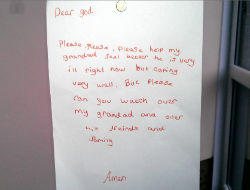 Dear god.
Please, Please, Please help my
grandad feel better he is very
ill right now but coping
very well. But Please
can you watch over
my grandad and over
his freinds and
family
Amen